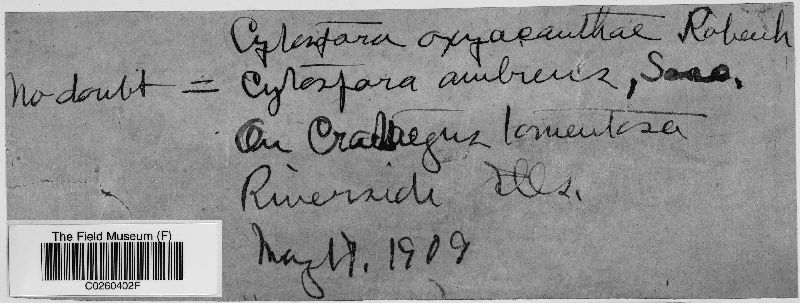 Cytospora oxyacanthae Rabenh
No doubt = Cytospora ambiens, Sacc.
On Crataegus tomentosa
Riverside Ills.
May 17, 1909
The Field Museum (F)
C0260402F